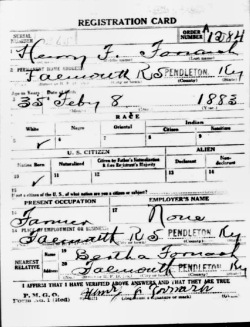 REGISTRATION CARD
SERIAL NUMBER
ORDER NUMBER A1284
1 Henry F. Formash
(Last name)
2 PERMANENT HOME ADDRESS
Falmouth R5 PENDLETON Ky
(County)
Age in Years
Date of Birth
35 Feby 8 1883
RACE
White
Negro
Oriental
Indian
Citizen
U. S. CITIZEN
ALIEN
Native Born
Naturalized
Citizen by Father's Naturalization
Before Registrant's Majority
Declarant
Non-declarant
If not a citizen of the U. S., of what nation are you a citizen or subject?
PRESENT OCCUPATION
EMPLOYER'S NAME
Farmer
None
PLACE OF EMPLOYMENT OR BUSINESS
Falmouth R5 PENDLETON Ky
NEAREST RELATIVE
Name
Bertha
Address
Falmouth PENDLETON Ky
I AFFIRM THAT I HAVE VERIFIED ABOVE ANSWERS AND THAT THEY ARE TRUE
P. M. G. O.
Form No. 1 (Red)
Henry